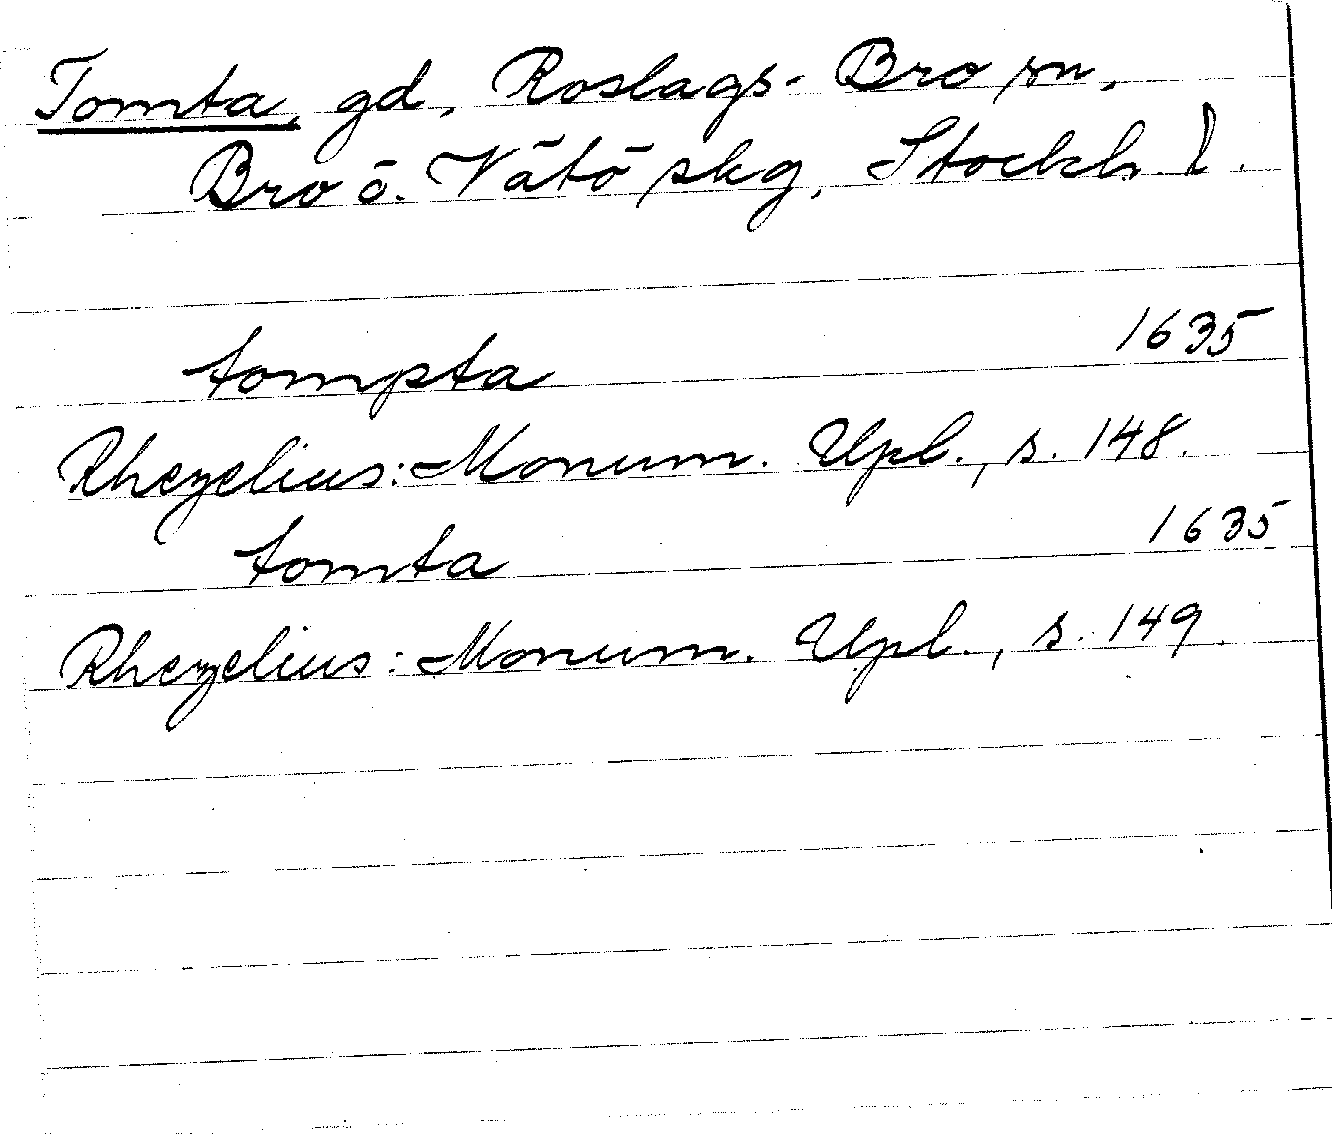 Tomta, gd, Roslags-Bro sn,
Bro o. Vätö skg, Stockh. l.
tompta 1635
Rhezelius: Monum. Upl., s. 148.
tomta 1635
Rhezelius: Monum. Upl., s. 149.